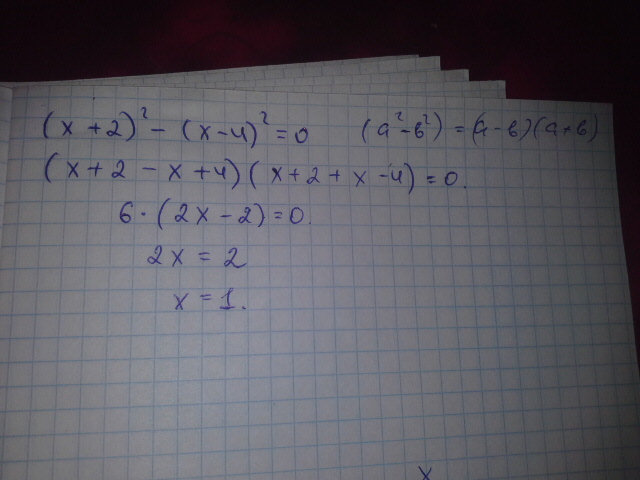 (x+2)² - (x-4)² = 0 (a²-в²) = (a-в)(a+в)
(x+2-x+4)(x+2+x-4)=0.
6·(2x-2)=0.
2x = 2
x = 1.
x